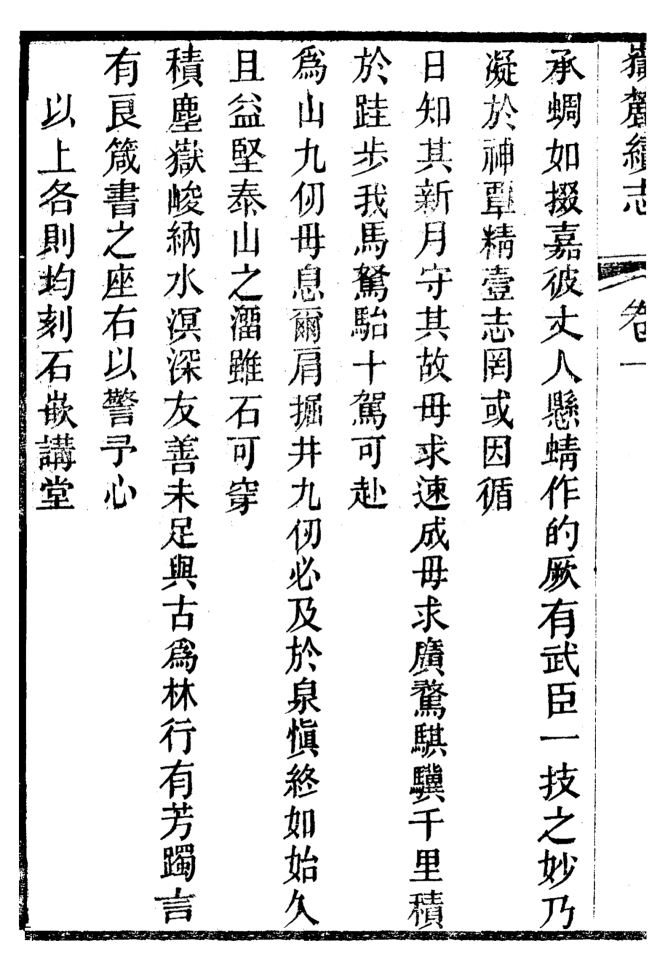 嶽麓續志 卷一
承蜩如掇嘉彼丈人懸蜻作的厥有武臣一技之妙乃
凝於神覃精壹志罔或因循
日知其新月守其故毋求速成毋求廣騖騏驥千里積
於跬步我馬駑駘十駕可赴
爲山九仞毋息爾肩掘井九仞必及於泉愼終如始久
且益堅泰山之霤雖石可穿
積塵嶽峻納水溟深友善未足與古爲林行有芳躅言
有良箴書之座右以警予心
以上各則均刻石嵌講堂